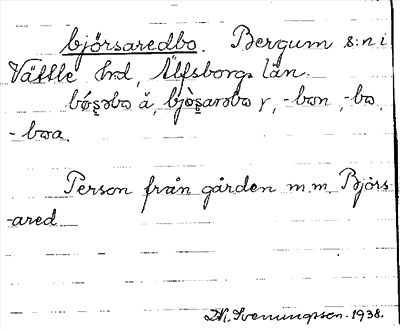 björsaredbo. Bergum s:n i
Vättle hd, Älfsborgs län.
bǿʂəbo ä, bjòʂarəbo y, -bon, -bo,
-boa.
Person från gården m.m. Björs-
-ared
1938.